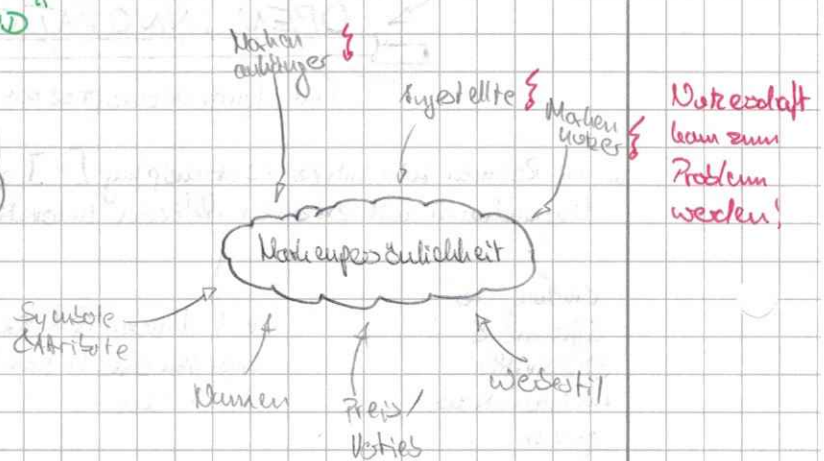 Marken
anhänger
Angestellte
Marken
nutzer
Nutzerschaft
kann zum
Problem
werden!
Markenpersönlichkeit
Symbole
& Attribute
Namen
Preis/
Vertrieb
Werbestil